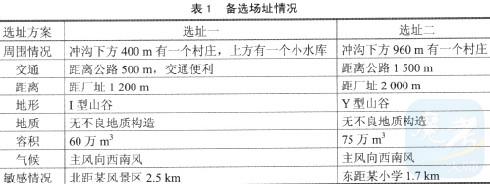 表 1 备选场址情况
选址方案 选址一 选址二
周围情况 冲沟下方 400 m 有一个村庄，上方有一个小水库 冲沟下方 960 m 有一个村庄
交通 距离公路 500 m，交通便利 距离公路 1 500 m
距离 距厂址 1 200 m 距厂址 2 000 m
地形 I 型山谷 Y 型山谷
地质 无不良地质构造 无不良地质构造
容积 60 万 m³ 75 万 m³
气候 主风向西南风 主风向西南风
敏感情况 北距某风景区 2.5 km 东距某小学 1.7 km